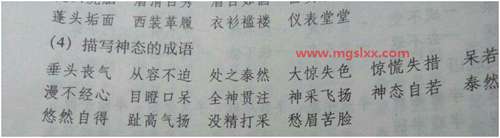 蓬头垢面 西装革履 衣衫褴褛 仪表堂堂
(4) 描写神态的成语
www.mgslxx.com
垂头丧气 从容不迫 处之泰然 大惊失色 惊慌失措 呆若
漫不经心 目瞪口呆 全神贯注 神采飞扬 神态自若 泰然
悠然自得 趾高气扬 没精打采 愁眉苦脸